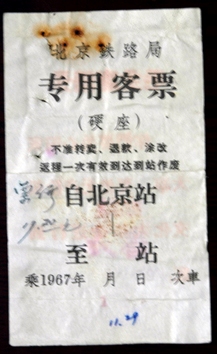 北京铁路局
专用客票
（硬座）
不准转卖、退款、涂改
返程一次有效到达到站作废
自北京站
至　　站
乘1967年　月　日　次車
11.29